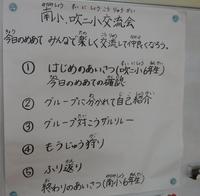 南小、吹二小交流会
今日のめあて みんなで楽しく交流して仲良くなろう。
① はじめのあいさつ(吹二小6年生)
今日のめあての確認
② グループに分かれて自己紹介
③ グループ対こうサルリレー
④ もうじゅう狩り
⑤ ふり返り
終わりのあいさつ(南小6年生)